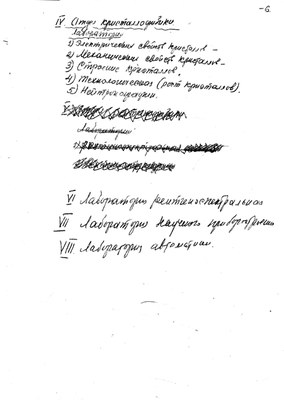 -6.
IV Отдел кристаллофизики
Лаборатории
1) Электрических свойств кристаллов -
2) Механических свойств кристаллов -
3) Строение кристаллов,
4) Технологическая (рост кристаллов).
5) Нейтронографии.
V
Лаборатории:
VI Лаборатория рентгеноспектральная
VII Лаборатория научного приборостроения
VIII Лаборатория автоматики.